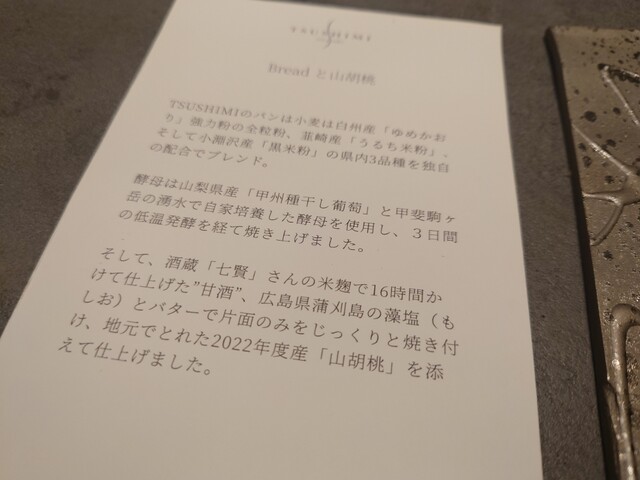 TSUSHIMI
Bread と山胡桃
TSUSHIMIのパンは小麦は白州産「ゆめかお
り」強力粉の全粒粉、韮崎産「うるち米粉」、
そして小淵沢産「黒米粉」の県内3品種を独自
の配合でブレンド。
酵母は山梨県産「甲州種干し葡萄」と甲斐駒ヶ
岳の湧水で自家培養した酵母を使用し、３日間
の低温発酵を経て焼き上げました。
そして、酒蔵「七賢」さんの米麹で16時間か
けて仕上げた”甘酒”、広島県蒲刈島の藻塩（も
しお）とバターで片面のみをじっくりと焼き付
け、地元でとれた2022年度産「山胡桃」を添
えて仕上げました。